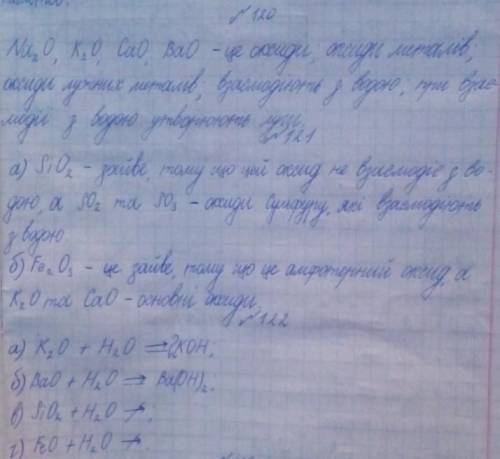 №120
Na₂O, K₂O, CaO, BaO - це оксиди, оксиди металів;
оксиди лужних металів; взаємодіють з водою; при взає-
модії з водою утворюють луги.
№121
а) SiO₂ - зайве, тому що цей оксид не взаємодіє з во-
дою, а SO₂ та SO₃ - оксиди сульфуру, які взаємодіють
з водою
б) Fe₂O₃ - це зайве, тому що це амфотерний оксид, а
K₂O та CaO - основні оксиди.
№122
а) K₂O + H₂O ⇒ 2KOH.
б) BaO + H₂O ⇒ Ba(OH)₂.
в) SiO₂ + H₂O ↛.
г) FeO + H₂O ↛.